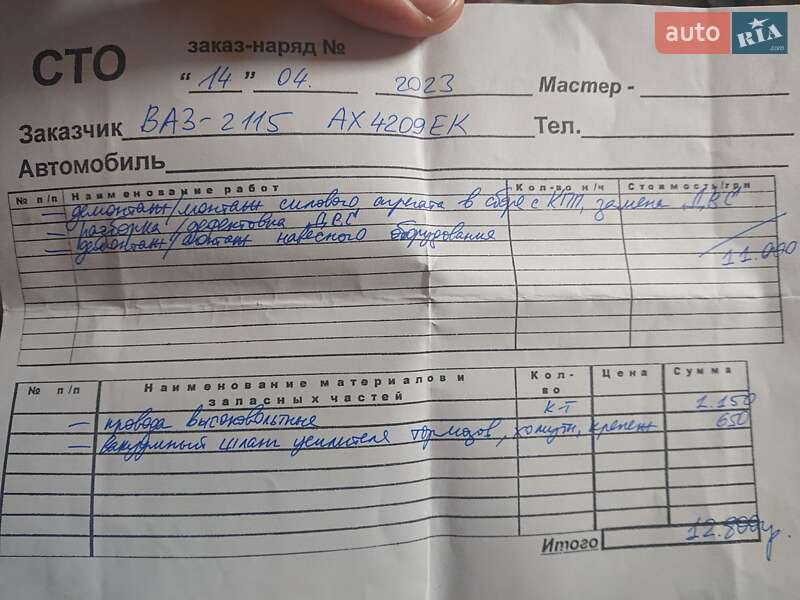 auto RIA .com
СТО
заказ-наряд №
"14" 04. 2023 Мастер -
Заказчик ВАЗ-2115 АХ4209ЕК Тел.
Автомобиль
№ п/п Наименование работ Кол-во н/ч Стоимость/грн
— демонтаж/монтаж силового агрегата в сборе с КПП, замена ДВС
— разборка/дефектовка ДВС
— демонтаж/монтаж навесного оборудования
11.000
№ п/п Наименование материалов и запасных частей Кол-во Цена Сумма
— провода высоковольтные к-т 1.150
— вакуумный шланг усилителя тормозов, хомуты, крепеж 650
Итого 12.800гр.